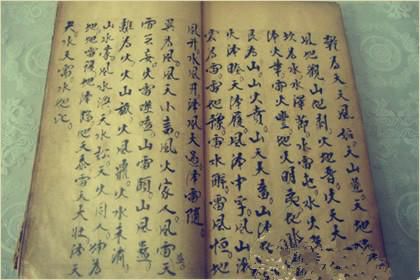 乾為天天風姤。天山遯。天地
風地觀山地剥火地晋火天大
坎為水水澤節水雷屯水火
澤火革雷火豐地火明夷地水
艮為山山火賁山天大畜山澤
火澤睽天澤履風澤中孚風山
震為雷雷地豫雷水解雷風恒地
風升水風井澤風大過澤雷隨
巽為風風天小畜風火家人風雷益
天雷无妄火雷噬嗑山雷頤山風蠱
離為火火山旅火風鼎火水未濟
山水蒙風水渙天水訟天火同人坤為
地地雷復地澤臨地天泰雷天大壯澤天
夬水天需水地比